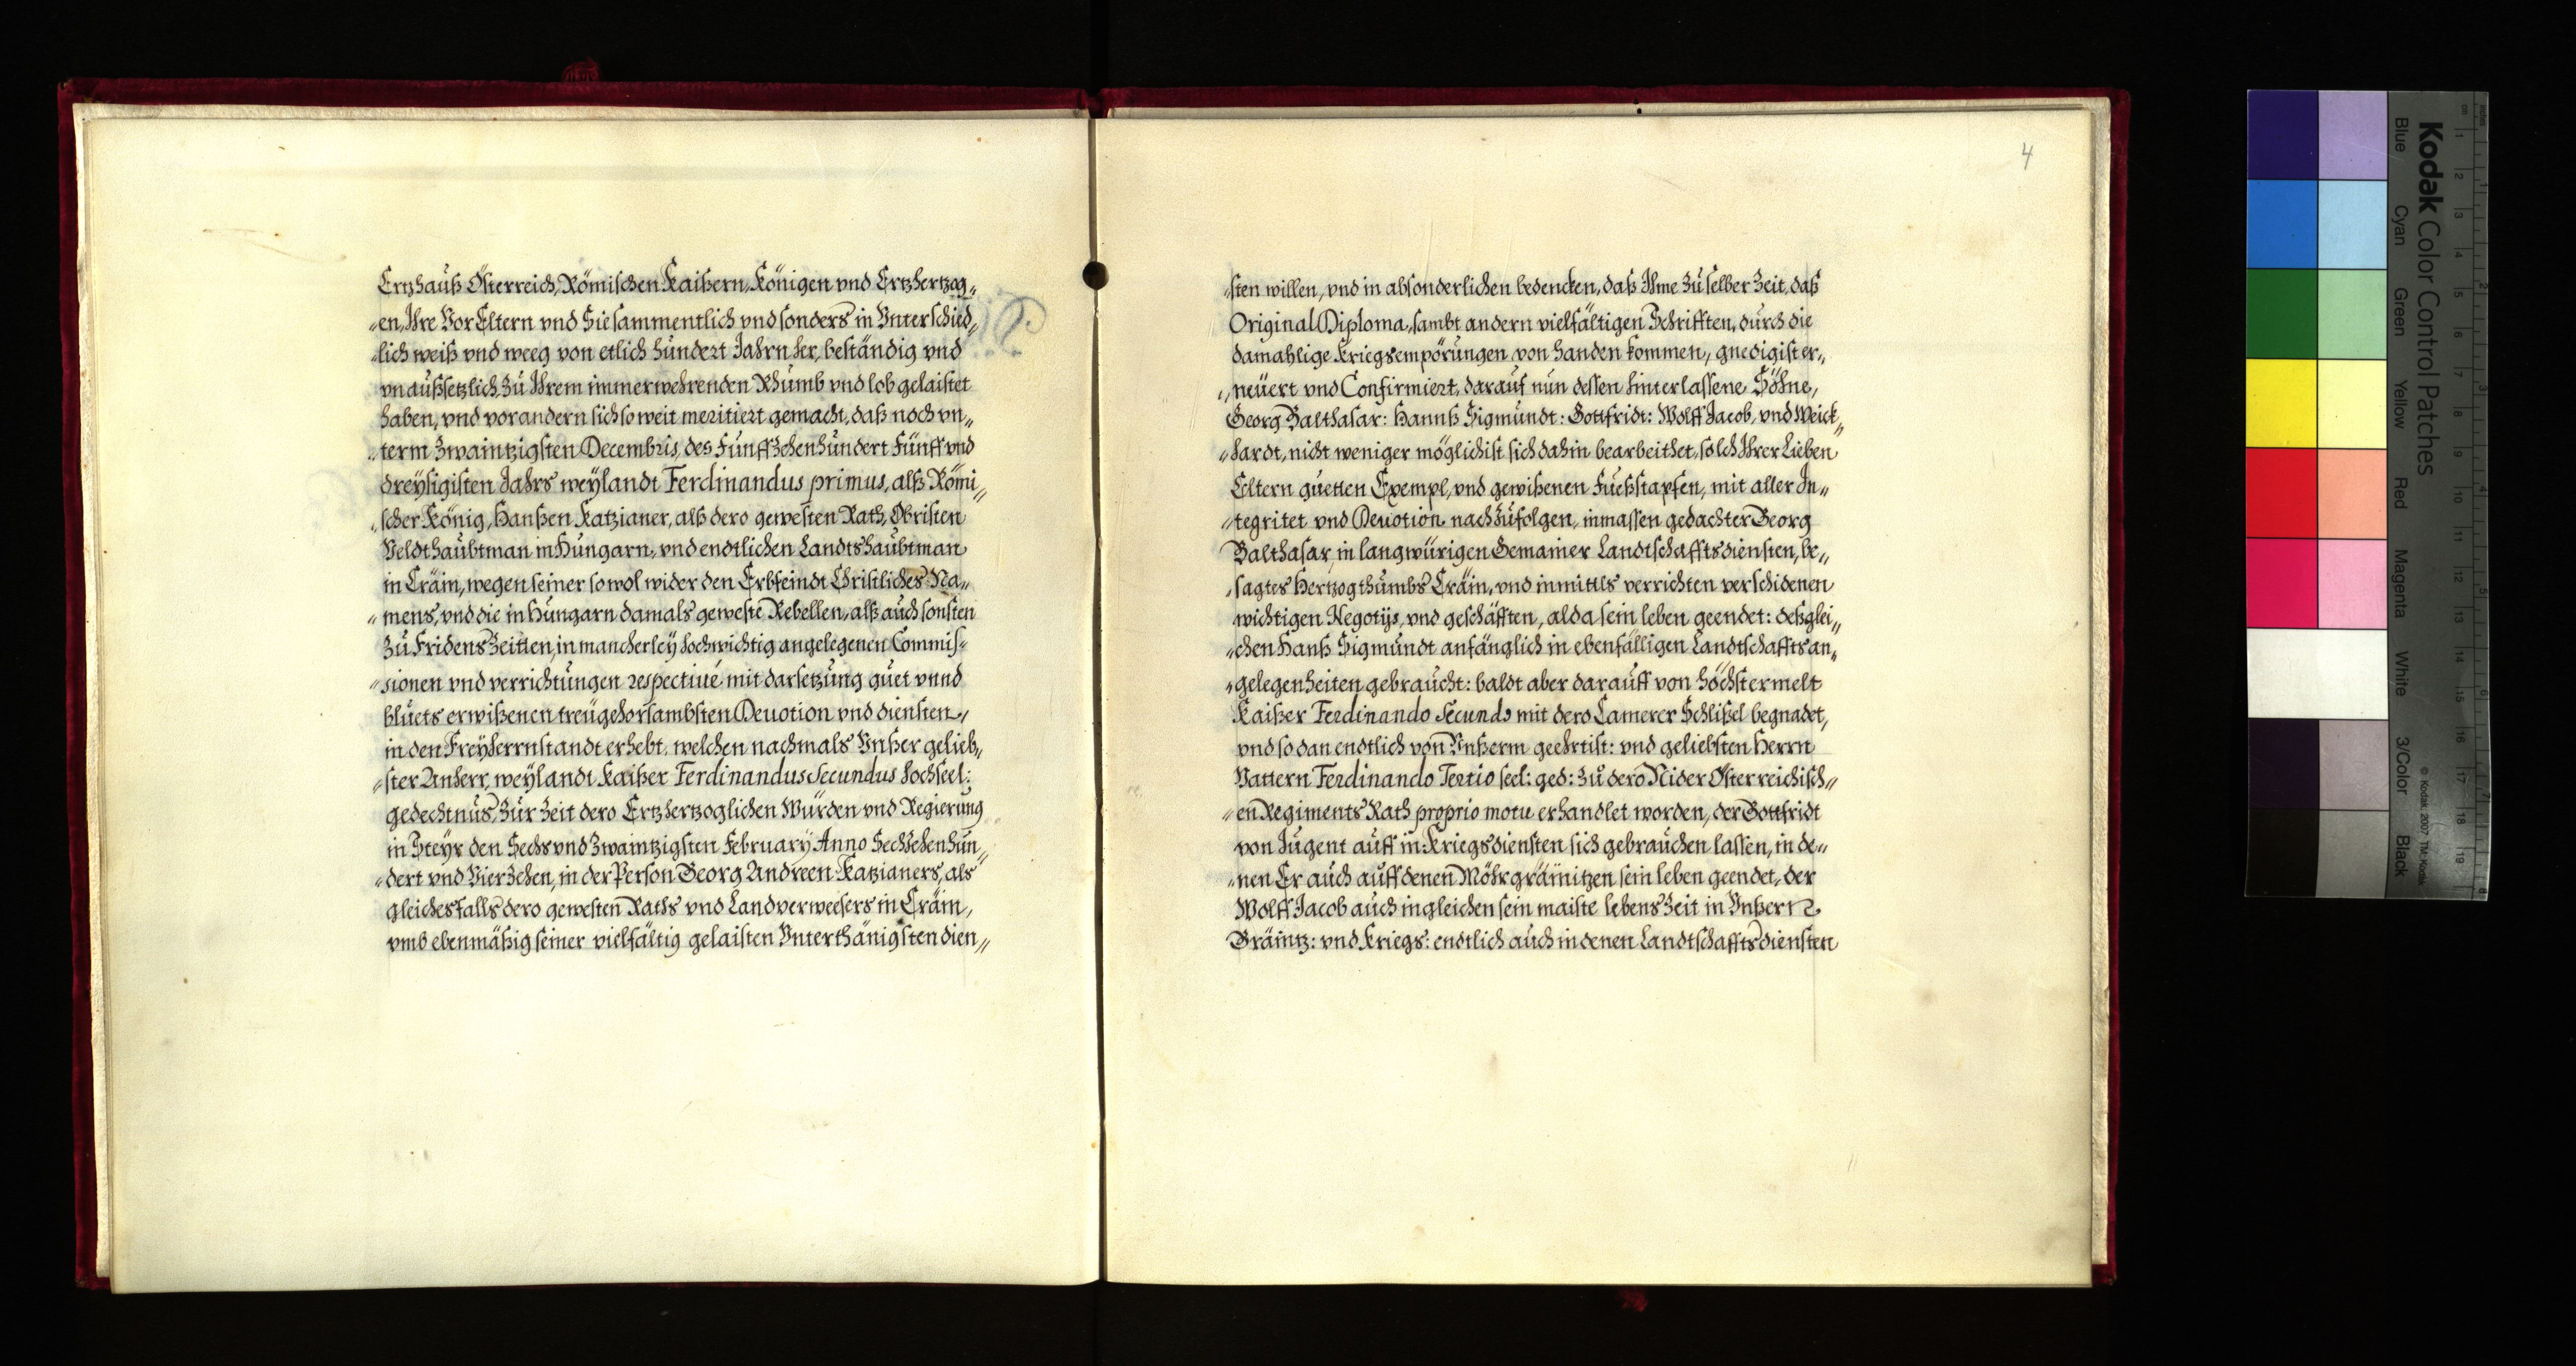 Ertzhauß Österreich, Römischen Kaißern, Königen vnd Ertzhertzog„
„en, Ihre VorEltern vnd Sie sammentlich vnd sonders in Vnterschied„
„lich weiß vnd weeg von etlich hundert Jahrn her, beständig vnd
vnaußsetzlich, zu Ihrem immerwehrenden Rhumb vnd lob gelaistet
haben, vnd vor andern sich so weit meritiert gemacht, daß noch vn„
„term Zwaintzigsten Decembris, des Funffzehenhundert Fünff vnd
dreysigisten Jahrs weylandt Ferdinandus primus, alß Römi„
„scher König, Hanßen Katzianer, alß dero gewesten Rath, Obristen
Veldthaubtman in Hungarn, vnd endtlichen Landtshaubtman
in Crain, wegen seiner so wol wider den Erbfeindt Christliches Na„
„mens, vnd die in Hungarn damals geweste Rebellen, alß auch sonsten
zu Fridens Zeitten, in mancherley hochwichtig angelegenen Commis„
„sionen vnd verrichtungen respectiué mit darsetzung guet vnnd
bluets erwißenen treugehorsambsten Deuotion vnd diensten,
in den Freyherrnstandt erhebt, welchen nachmals Vnßer gelieb„
„ster Anherr, weylandt Kaißer Ferdinandus Secundus hochseel:
gedechtnus, zur Zeit dero Ertzhertzoglichen Würden vnd Regierung
in Steyr den Sechs vnd Zwaintzigsten February Anno Sechzehenhun„
„dert vnd Vierzehen, in der Person Georg Andreen Katzianers, als
gleichesfalls dero gewesten Raths vnd Landverweesers in Crain,
vmb ebenmäßig seiner vielfältig gelaisten Vnterthänigsten dien„
4
„sten willen, vnd in absonderlichen bedencken, daß Ihme zu selber Zeit, daß
Original Diploma, sambt andern vielfältigen Schrifften, durch die
damahlige Kriegsempörungen von handen kommen, gnedigist er„
„neuert vnd Confirmiert, darauf nun dessen hinterlassene Söhne,
Georg Balthasar: Hannß Sigmundt: Gottfridt: Wolff Jacob, vnd Weick„
„hardt, nicht weniger möglichist sich dahin bearbeithet, solch Ihrer Lieben
Eltern guetten Exempl, vnd gewißenen Fueßstapfen, mit aller In„
„tegritet vnd Deuotion nachzufolgen, inmassen gedachter Georg
Balthasar, in langwürigen Gemainer Landtschafftsdiensten, be„
„sagtes Hertzogthumbs Crain, vnd inmittls verrichten verschidenen
wichtigen Negotijs, vnd geschäfften, alda sein leben geendet: deßglei„
„chen Hanß Sigmundt anfänglich in ebenfälligen Landtschaffts an„
„gelegenheiten gebraucht: baldt aber darauff von höchstermelt
Kaißer Ferdinando Secundo mit dero Camerer Schlißel begnadet,
vnd so dan endtlich von Vnßerm geehrtist: vnd geliebsten Herrn
Vattern Ferdinando Tertio seel: ged: zu dero Nider Österreichisch„
„en Regiments Rath proprio motu erhandlet worden, der Gottfridt
von Jugent auff in Kriegsdiensten sich gebrauchen lassen, in de„
„nen Er auch auff denen Möhrgränitzen sein leben geendet, der
Wolff Jacob auch ingleichen sein maiste lebens Zeit in Vnßern
Gränitz: vnd Kriegs: endtlich auch in denen Landtschafftsdiensten
Kodak Color Control Patches
Blue Cyan Green Yellow Red Magenta White 3/Color Black
© Kodak, 2007 TM: Kodak